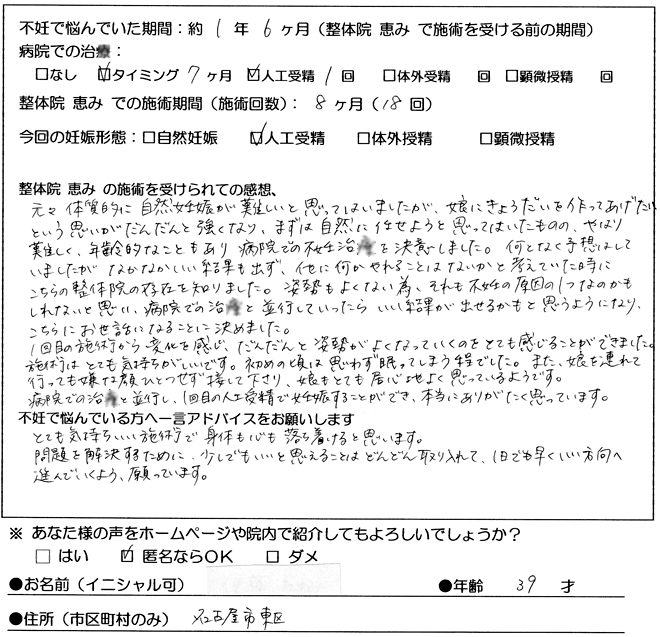 不妊で悩んでいた期間：約 1 年 6 ヶ月（整体院 恵み で施術を受ける前の期間）
病院での治療：
□なし ☑タイミング 7 ヶ月 ☑人工受精 1 回 □体外受精 回 □顕微授精 回
整体院 恵み での施術期間（施術回数）： 8 ヶ月（18 回）
今回の妊娠形態：□自然妊娠 ☑人工受精 □体外授精 □顕微授精
整体院 恵み の施術を受けられての感想、
元々 体質的に 自然妊娠が難しいと 思ってはいましたが、娘にきょうだいを作ってあげたい
という思いがだんだんと 強くなり、まずは自然に任せようと思ってはいたものの、やはり
難しく、年齢的なこともあり 病院での不妊治療を決意しました。何となく予想はして
いましたが なかなかいい結果も出ず、他に何かやれることはないかと 考えていた時に
こちらの整体院の存在を知りました。姿勢もよくない為、それも不妊の原因の1つなのかも
しれないと思い、病院での治療と並行していったら いい結果が出せるかもと思うようになり、
こちらにお世話になることに決めました。
1回目の施術から 変化を感じ、だんだんと 姿勢がよくなっていくのをとても感じることができました。
施術は とても気持ちがいいです。初めの頃は思わず眠ってしまう程でした。また、娘を連れて
行っても嫌な顔ひとつせず接して下さり、娘もとても居心地よく思っているようです。
病院での治療と並行し、1回目の人工受精で妊娠することができ、本当にありがたく思っています。
不妊で悩んでいる方へ一言アドバイスをお願いします
とても気持ちいい施術で 身体も心も 落ち着けると思います。
問題を解決するために、少しでもいいと思えることは どんどん取り入れて、1日でも早くいい方向へ
進んでいくよう、願っています。
※ あなた様の声をホームページや院内で紹介してもよろしいでしょうか？
□ はい ☑ 匿名ならOK □ ダメ
●お名前（イニシャル可） ●年齢 39 才
●住所（市区町村のみ） 名古屋市東区